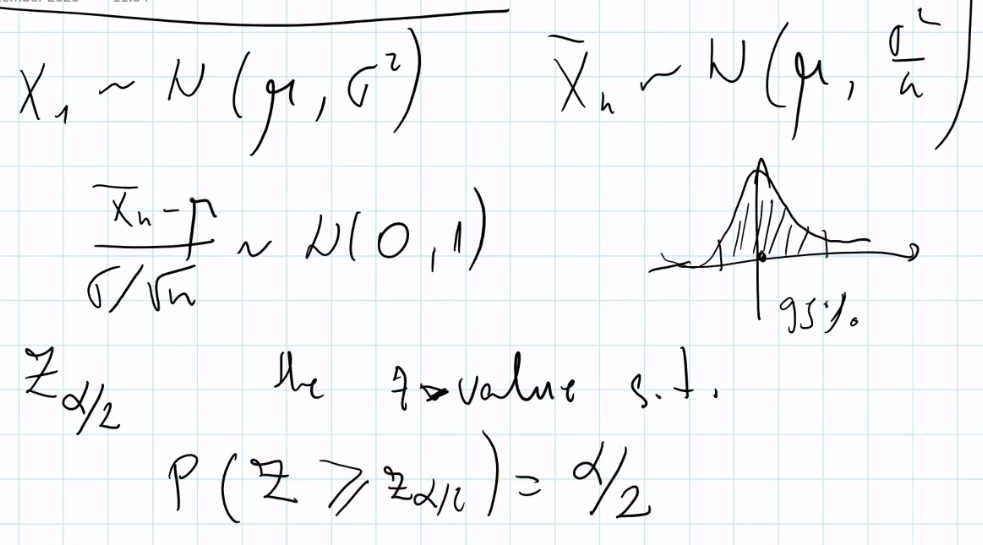 X₁ ~ N(μ, σ²) X̄ₙ ~ N(μ, σ²/n)
(X̄ₙ - μ)/(σ/√n) ~ N(0, 1)
95%
Z_{α/2} the z-value s.t.
P(Z ≥ z_{α/2}) = α/2